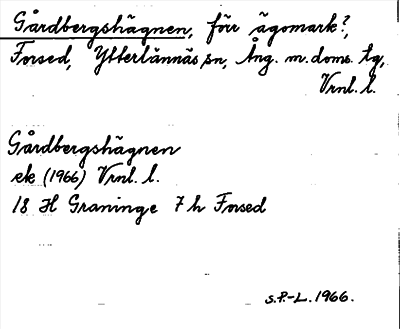 Gårdbergshägnen, förr ägomark?,
Forsed, Ytterlännäs sn, Ång. m. doms. tg,
Vrnl. l.
Gårdbergshägnen
ek (1966) Vrnl. l.
18 H Graninge 7 h Forsed
S.P.-L. 1966.